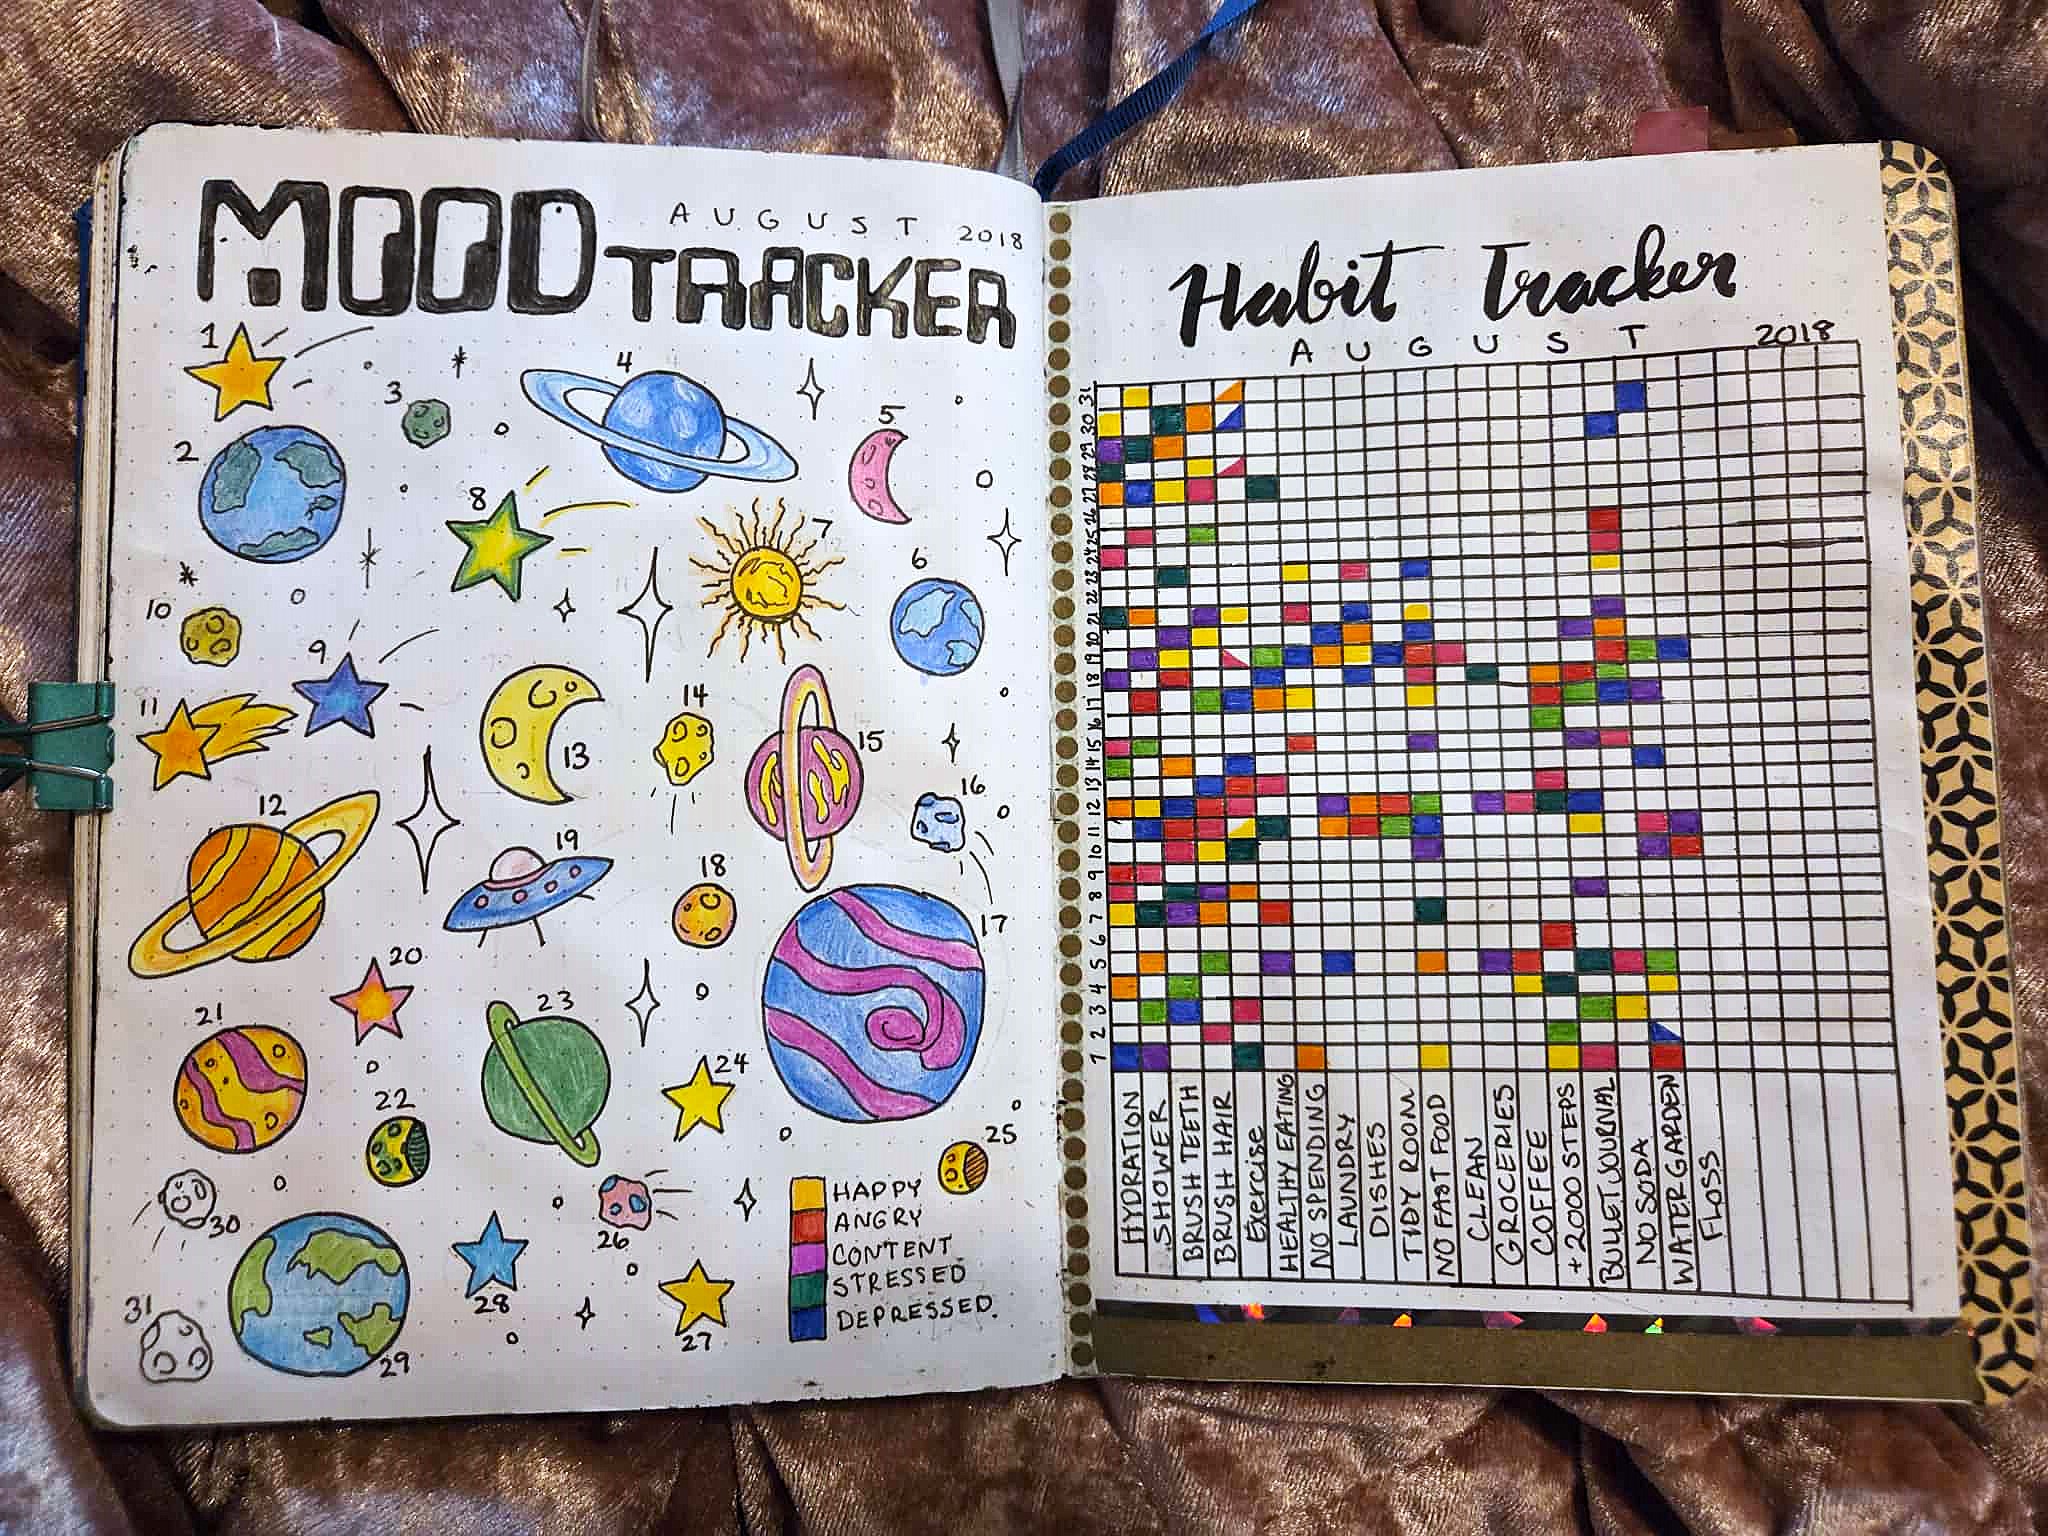 MOOD
AUGUST 2018
TRACKER
1
4
3
5
2
8
7
6
10
9
11
14
13
15
16
12
19
18
17
20
21
23
24
22
25
30
26
28
31
29
27
HAPPY
ANGRY
CONTENT
STRESSED
DEPRESSED.
Habit Tracker
AUGUST 2018
31
30
29
28
27
26
25
24
23
22
21
20
19
18
17
16
15
14
13
12
11
10
9
8
7
6
5
4
3
2
1
HYDRATION
SHOWER
BRUSH TEETH
BRUSH HAIR
Exercise
HEALTHY EATING
NO SPENDING
LAUNDRY
DISHES
TIDY ROOM
NO FAST FOOD
CLEAN
GROCERIES
COFFEE
+2000 STEPS
BULLET JOURNAL
NO SODA
WATER GARDEN
FLOSS